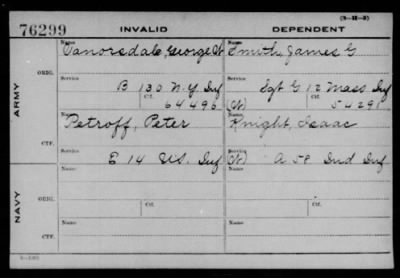 (3-12-3)
76299 INVALID DEPENDENT
Name Name
Vanorsdale, George W Smith, James G
ARMY
ORIG.
Service Service
B 130 N.Y. Inf Sgt G 12 Mass Inf
Ctf. Ctf.
64496 (W) 54291
Name Name
Petroff, Peter Knight, Isaac
CTF.
Service Service
E 14 U.S. Inf (W) A 58 Ind Inf
NAVY
Name Name
ORIG.
Ctf. Ctf.
Name Name
CTF.